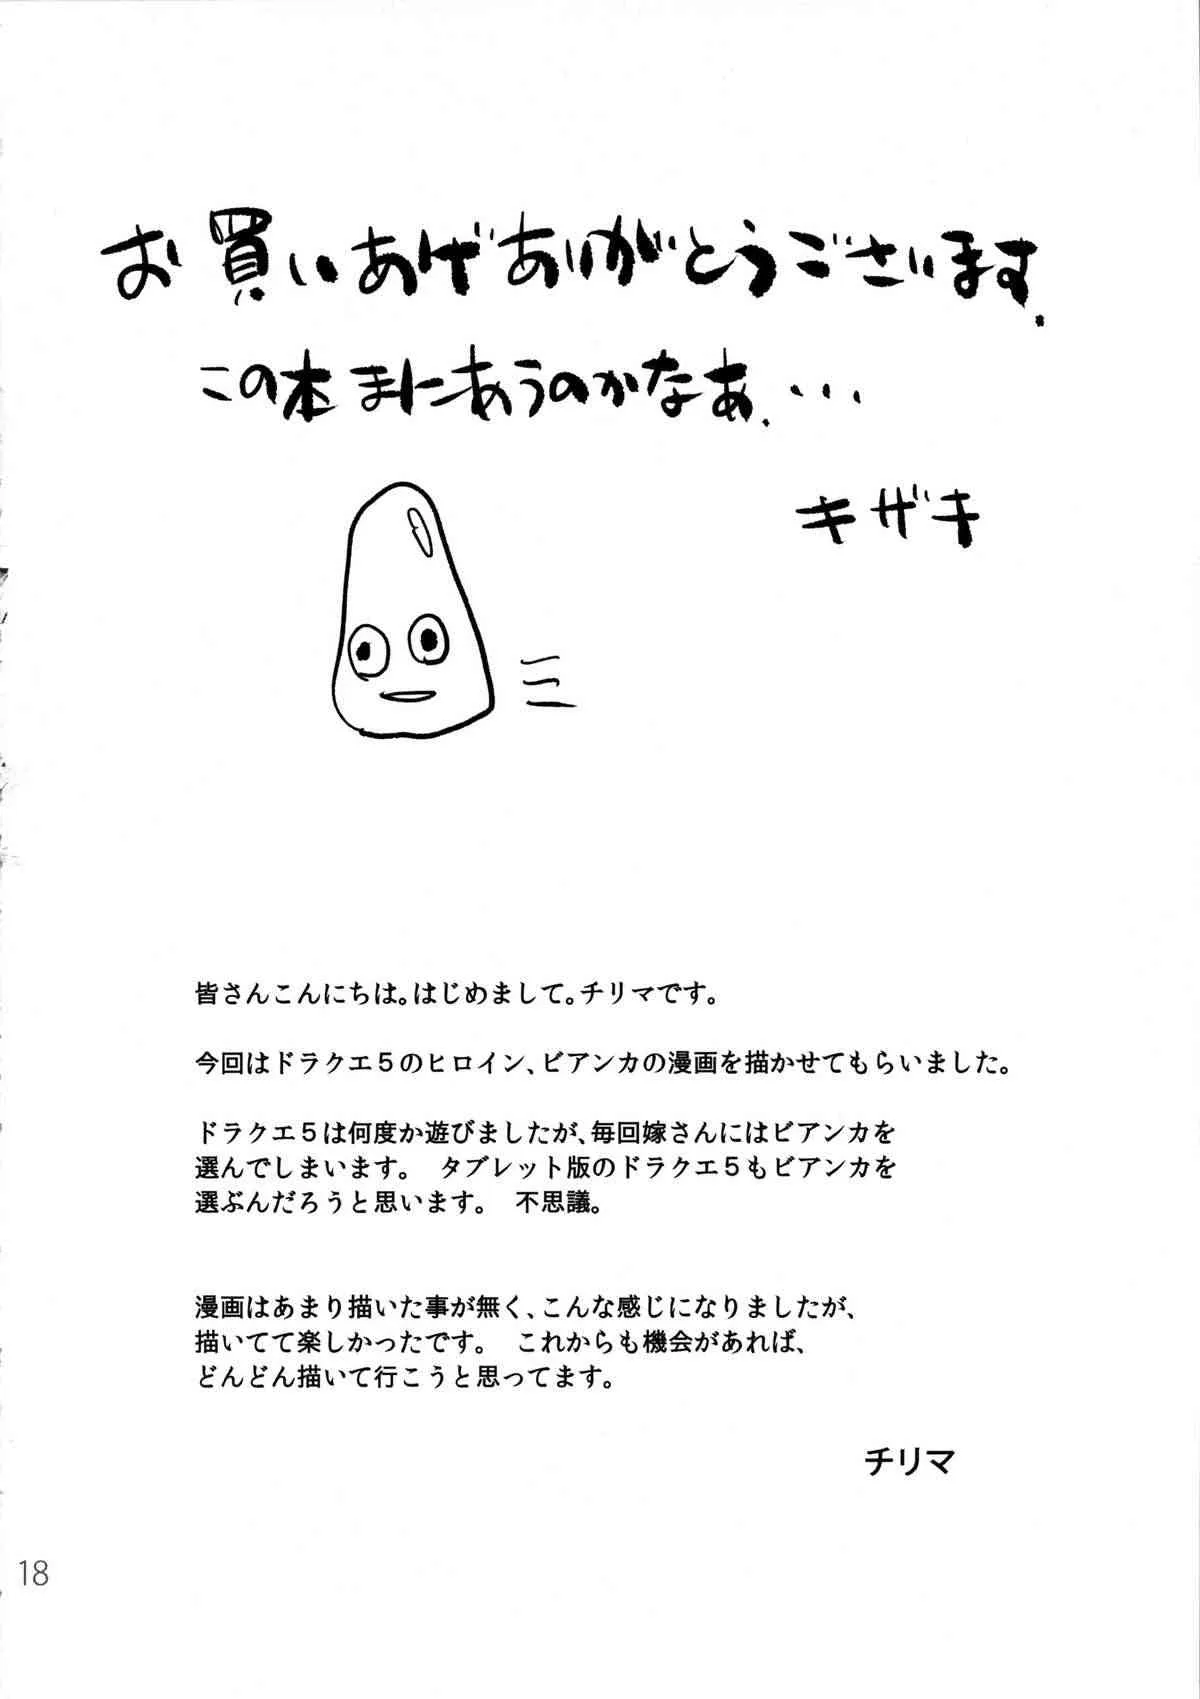 お買いあげありがとうございます.
この本まにあうのかなあ....
キザキ
皆さんこんにちは。はじめまして。チリマです。
今回はドラクエ５のヒロイン、ビアンカの漫画を描かせてもらいました。
ドラクエ５は何度か遊びましたが、毎回嫁さんにはビアンカを
選んでしまいます。　タブレット版のドラクエ５もビアンカを
選ぶんだろうと思います。　不思議。
漫画はあまり描いた事が無く、こんな感じになりましたが、
描いてて楽しかったです。　これからも機会があれば、
どんどん描いて行こうと思ってます。
チリマ
18